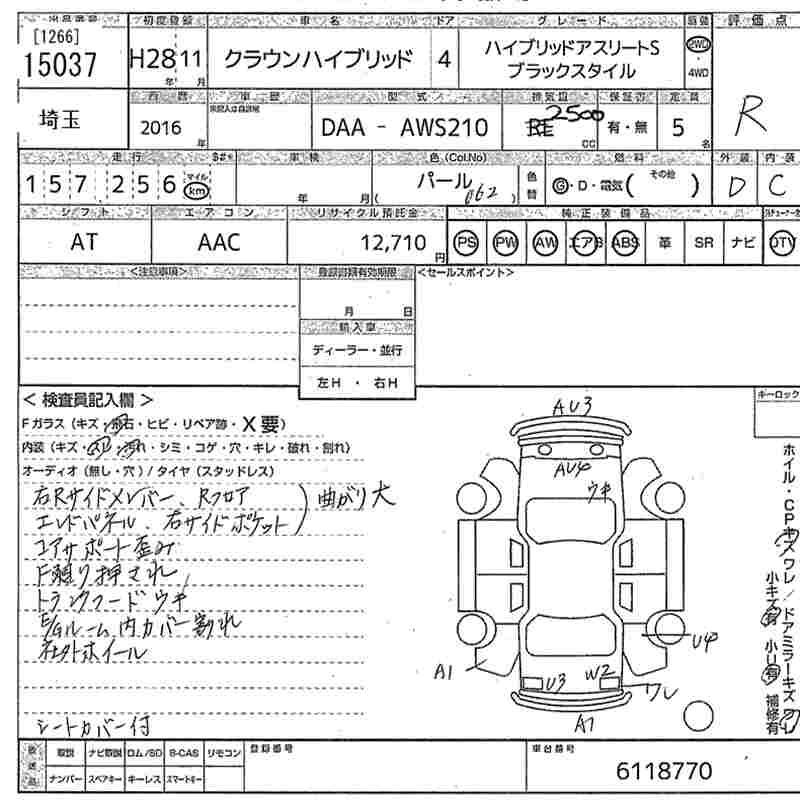 出品番号 初度登録 車名 ドア グレード 駆動 評価点
[1266]
15037 H28 11 年 月 クラウンハイブリッド 4 ハイブリッドアスリートS
ブラックスタイル
2WD
・
4WD
R
西暦 車歴 型式 排気量 保証書 定員
埼玉 2016 年 DAA - AWS210 2500 CC 有・無 5 名
走行 車検 色(Col.No) 燃料 外装 内装
157,256 マイル km 年 月 パール (062) 色替 G・D・電気( その他 ) D C
シフト エアコン リサイクル預託金 純正装備品
AT AAC 12,710 円 PS PW AW エアB ABS 革 SR ナビ DTV
<注意事項> 登録書類有効期限 <セールスポイント>
月 日
輸入車
ディーラー・並行
左H ・ 右H
< 検査員記入欄 >
Fガラス(キズ・飛石・ヒビ・リペア跡・X要)
内装(キズ・汚れ・シミ・コゲ・穴・キレ・破れ・割れ)
オーディオ(無し・穴)/タイヤ(スタッドレス)
右Rサイドメンバー、Rフロア
エンドパネル、右サイドポケット
曲がり大
コアサポート歪み
F廻り押され
トランクフードウキ
E/Gルーム内カバー割れ
社外ホイール
シートカバー付
AU3
AU4
ウキ
U4
A1
U3
W2
ワレ
A1
キーロック
ホイル・CPキズワレ/ドアミラーキズ
小キズ有 小U有 補修有
取説 ナビ取説 ロム/SD B-CAS リモコン 登録番号 車台番号
ナンバー スペアキー キーレス スマートキー 6118770